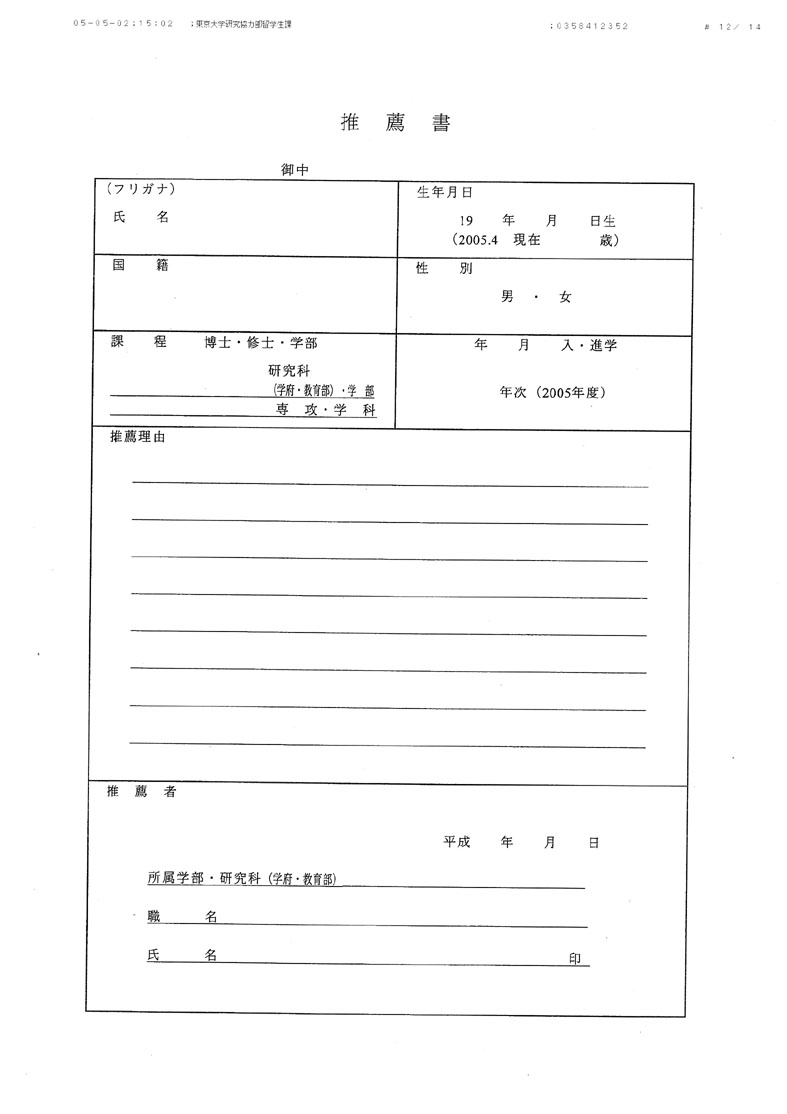 05-05-02;15:02 ;東京大学研究協力部留学生課 ;0358412352 # 12/ 14
推 薦 書
御中
(フリガナ)
氏 名
生年月日
19 年 月 日生
(2005.4 現在 歳)
国 籍
性 別
男 ・ 女
課 程 博士・修士・学部
研究科
(学府・教育部)・学 部
専 攻・学 科
年 月 入・進学
年次(2005年度)
推薦理由
推 薦 者
平成 年 月 日
所属学部・研究科(学府・教育部)
職 名
氏 名 印